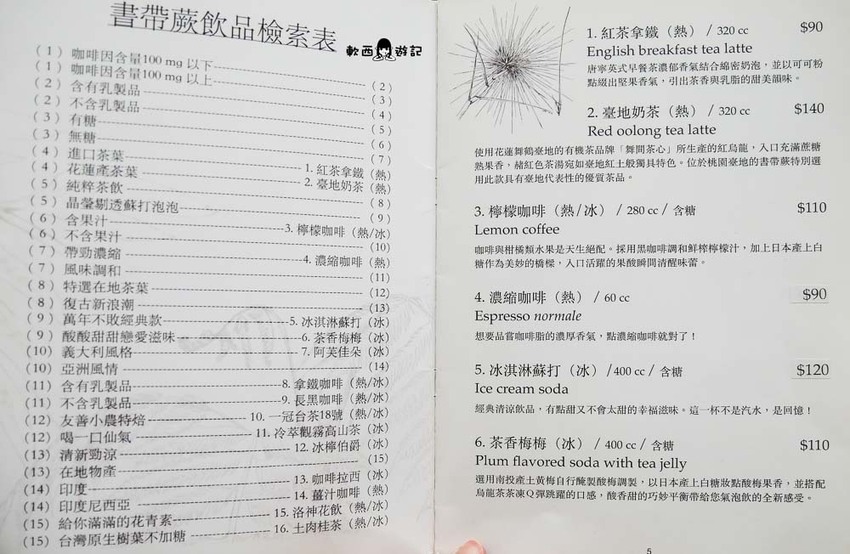 書帶蕨飲品檢索表
軟西遊記
(1) 咖啡因含量100 mg 以下 (2)
(1) 咖啡因含量100 mg 以上 (3)
(2) 含有乳製品 (4)
(2) 不含乳製品 (5)
(3) 有糖 (6)
(3) 無糖 (7)
(4) 進口茶葉 1. 紅茶拿鐵 (熱)
(4) 花蓮產茶葉 2. 臺地奶茶 (熱)
(5) 純粹茶飲 (8)
(5) 晶瑩剔透蘇打泡泡 (9)
(6) 含果汁 3. 檸檬咖啡 (熱/冰)
(6) 不含果汁 (10)
(7) 帶勁濃縮 4. 濃縮咖啡 (熱)
(7) 風味調和 (11)
(8) 特選在地茶葉 (12)
(8) 復古新浪潮 (13)
(9) 萬年不敗經典款 5. 冰淇淋蘇打 (冰)
(9) 酸酸甜甜戀愛滋味 6. 茶香梅梅 (冰)
(10) 義大利風格 7. 阿芙佳朵 (冰)
(10) 亞洲風情 (14)
(11) 含有乳製品 8. 拿鐵咖啡 (熱/冰)
(11) 不含乳製品 9. 長黑咖啡 (熱/冰)
(12) 友善小農特焙 10. 一冠台茶18號 (熱/冰)
(12) 喝一口仙氣 11. 冷萃觀霧高山茶 (冰)
(13) 清新勁涼 12. 冰檸伯爵 (冰)
(13) 在地物產 (15)
(14) 印度 13. 咖啡拉西 (冰)
(14) 印度尼西亞 14. 薑汁咖啡 (熱)
(15) 給你滿滿的花青素 15. 洛神花飲 (熱/冰)
(15) 台灣原生樹葉不加糖 16. 土肉桂茶 (熱/冰)
1. 紅茶拿鐵 (熱) / 320 cc $90
English breakfast tea latte
唐寧英式早餐茶濃郁香氣結合綿密奶泡，並以可可粉
點綴出堅果香氣，引出茶香與乳脂的甜美韻味。
2. 臺地奶茶 (熱) / 320 cc $140
Red oolong tea latte
使用花蓮舞鶴臺地的有機茶品牌「舞間茶心」所生產的紅烏龍，入口充滿蔗糖
熟果香，赭紅色茶湯宛如臺地紅土般獨具特色。位於桃園臺地的書帶蕨特別選
用此款具有臺地代表性的優質茶品。
3. 檸檬咖啡 (熱/冰) / 280 cc / 含糖 $110
Lemon coffee
咖啡與柑橘類水果是天生絕配。採用黑咖啡調和鮮榨檸檬汁，加上日本產上白
糖作為美妙的橋樑，入口活躍的果酸瞬間清醒味蕾。
4. 濃縮咖啡 (熱) / 60 cc $90
Espresso normale
想要品嘗咖啡脂的濃厚香氣，點濃縮咖啡就對了！
5. 冰淇淋蘇打 (冰) /400 cc / 含糖 $120
Ice cream soda
經典清涼飲品，有點甜又不會太甜的幸福滋味。這一杯不是汽水，是回憶！
6. 茶香梅梅 (冰) / 400 cc / 含糖 $110
Plum flavored soda with tea jelly
選用南投產土黃梅自行醃製酸梅調製，以日本產上白糖妝點酸梅果香，並搭配
烏龍茶茶凍Q彈跳躍的口感，酸香甜的巧妙平衡帶給您氣泡飲的全新感受。
5